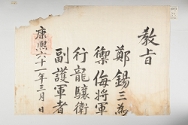 教旨
鄭錫三為
禦侮將軍
行龍驤衛
副護軍者
康熙六十一年三月 日